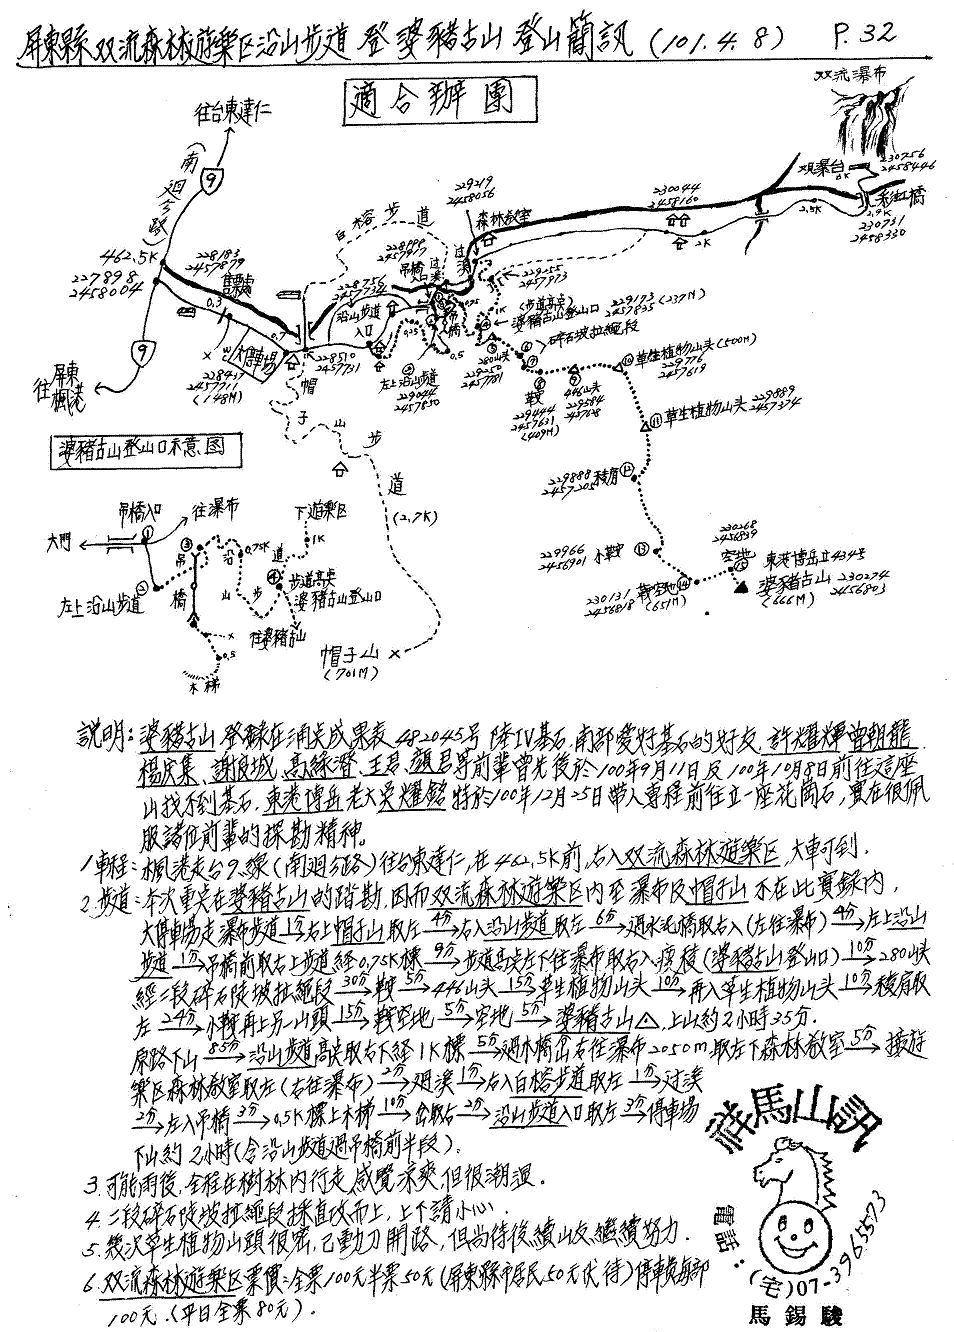 屏東縣双流森林遊樂区沿山步道登婆豬古山登山簡訊(101.4.8) P.32
適合辦團
双流瀑布
往台東達仁
(南迴公路)
9
462.5K
227898
2458004
228183
2457879
售票處
0.3
0.7
大停車場
228437
2457711
(148M)
9
往屏東楓港
白榕步道
229219
2458056
森林教室
230044
2458160
观瀑台
230756
2458446
彩虹橋
2.9K
2.5K
2K
230731
2458330
沿山步道入口
吊橋入口
過溪
1K
228510
2457731
左上沿山步道
229044
2457850
(步道高点)
婆豬古山登山口
229173
2457835
(237M)
碎石坡拉繩段
280山头
229250
2457781
鞍
229444
2457631
(409M)
446山头
229584
2457628
草生植物山头(500M)
229776
2457619
草生植物山头
229889
2457374
229888
2457205
稜肩
229966
2456901
小鞍
230131
2456818
鞍空地
(651M)
230268
2456839
空地
東港博岳立434号
婆豬古山
(666M)
230274
2456803
帽子山步道
(2.7K)
帽子山×
(701M)
婆豬古山登山口示意图
吊橋入口
往瀑布
下遊樂区
大門
1K
0.75K
左上沿山步道
吊橋
沿山步道
步道高点
婆豬古山登山口
往婆豬古山
0.5
木梯
說明:婆豬古山登錄在涌点成果表482045号陸IV基石,南部愛好基石的好友,許耀輝曾朝龍
楊庆集、謝良城、高錦澄、王君,顏君等前輩曾先後於100年9月11日及100年10月8日前往這座
山找不到基石,東港博岳老大吳耀銘特於100年12月25日帶人專程前往立一座花崗石,實在很佩
服諸位前輩的探勘精神。
1.車程:楓港走台9線(南迴公路)往台東達仁,在462.5K前,右入双流森林遊樂区,大車可到.
2.步道:本次重点在婆豬古山的踏勘,因而双流森林遊樂区內至瀑布及帽子山不在此實錄內,
大停車場走瀑布步道1分→右上帽子山取左4分→右入沿山步道取左6分→過水泥橋取右入(左往瀑布)4分→左上沿山
步道1分→吊橋前取右上步道經0.75K標9分→步道高点左下往瀑布取右入瘦稜(婆豬古山登山口)10分→280山头
經二段碎石陡坡拉繩段30分→鞍5分→446山头15分→草生植物山头10分→再入草生植物山头10分→稜肩取
左24分→小鞍再上另一山頭15分→鞍空地5分→空地5分→婆豬古山△,上山約2小時35分.
原路下山85分→沿山步道高点取右下經1K標5分→過木橋岔右往瀑布2050m取左下森林教室5分→接遊
樂区森林教室取左(右往瀑布)2分→過溪1分→右入白榕步道取左1分→过溪
2分→左入吊橋3分→0.5K標上木梯10分→岔取右2分→沿山步道入口取左3分→停車場
下山約2小時(含沿山步道過吊橋前半段).
3.可能雨後,全程在樹林內行走,感覺涼爽,但很潮溼.
4.二段碎石陡坡拉繩段採直攻而上,上下請小心.
5.幾次草生植物山頭很密,已動刀開路,但尚待後續山友繼續努力.
6.双流森林遊樂区票價:全票100元半票50元(屏東縣市居民50元优待)停車費每部
100元.(平日全票80元).
祥馬山訊
電話:(宅)07-3965573
馬錫駿